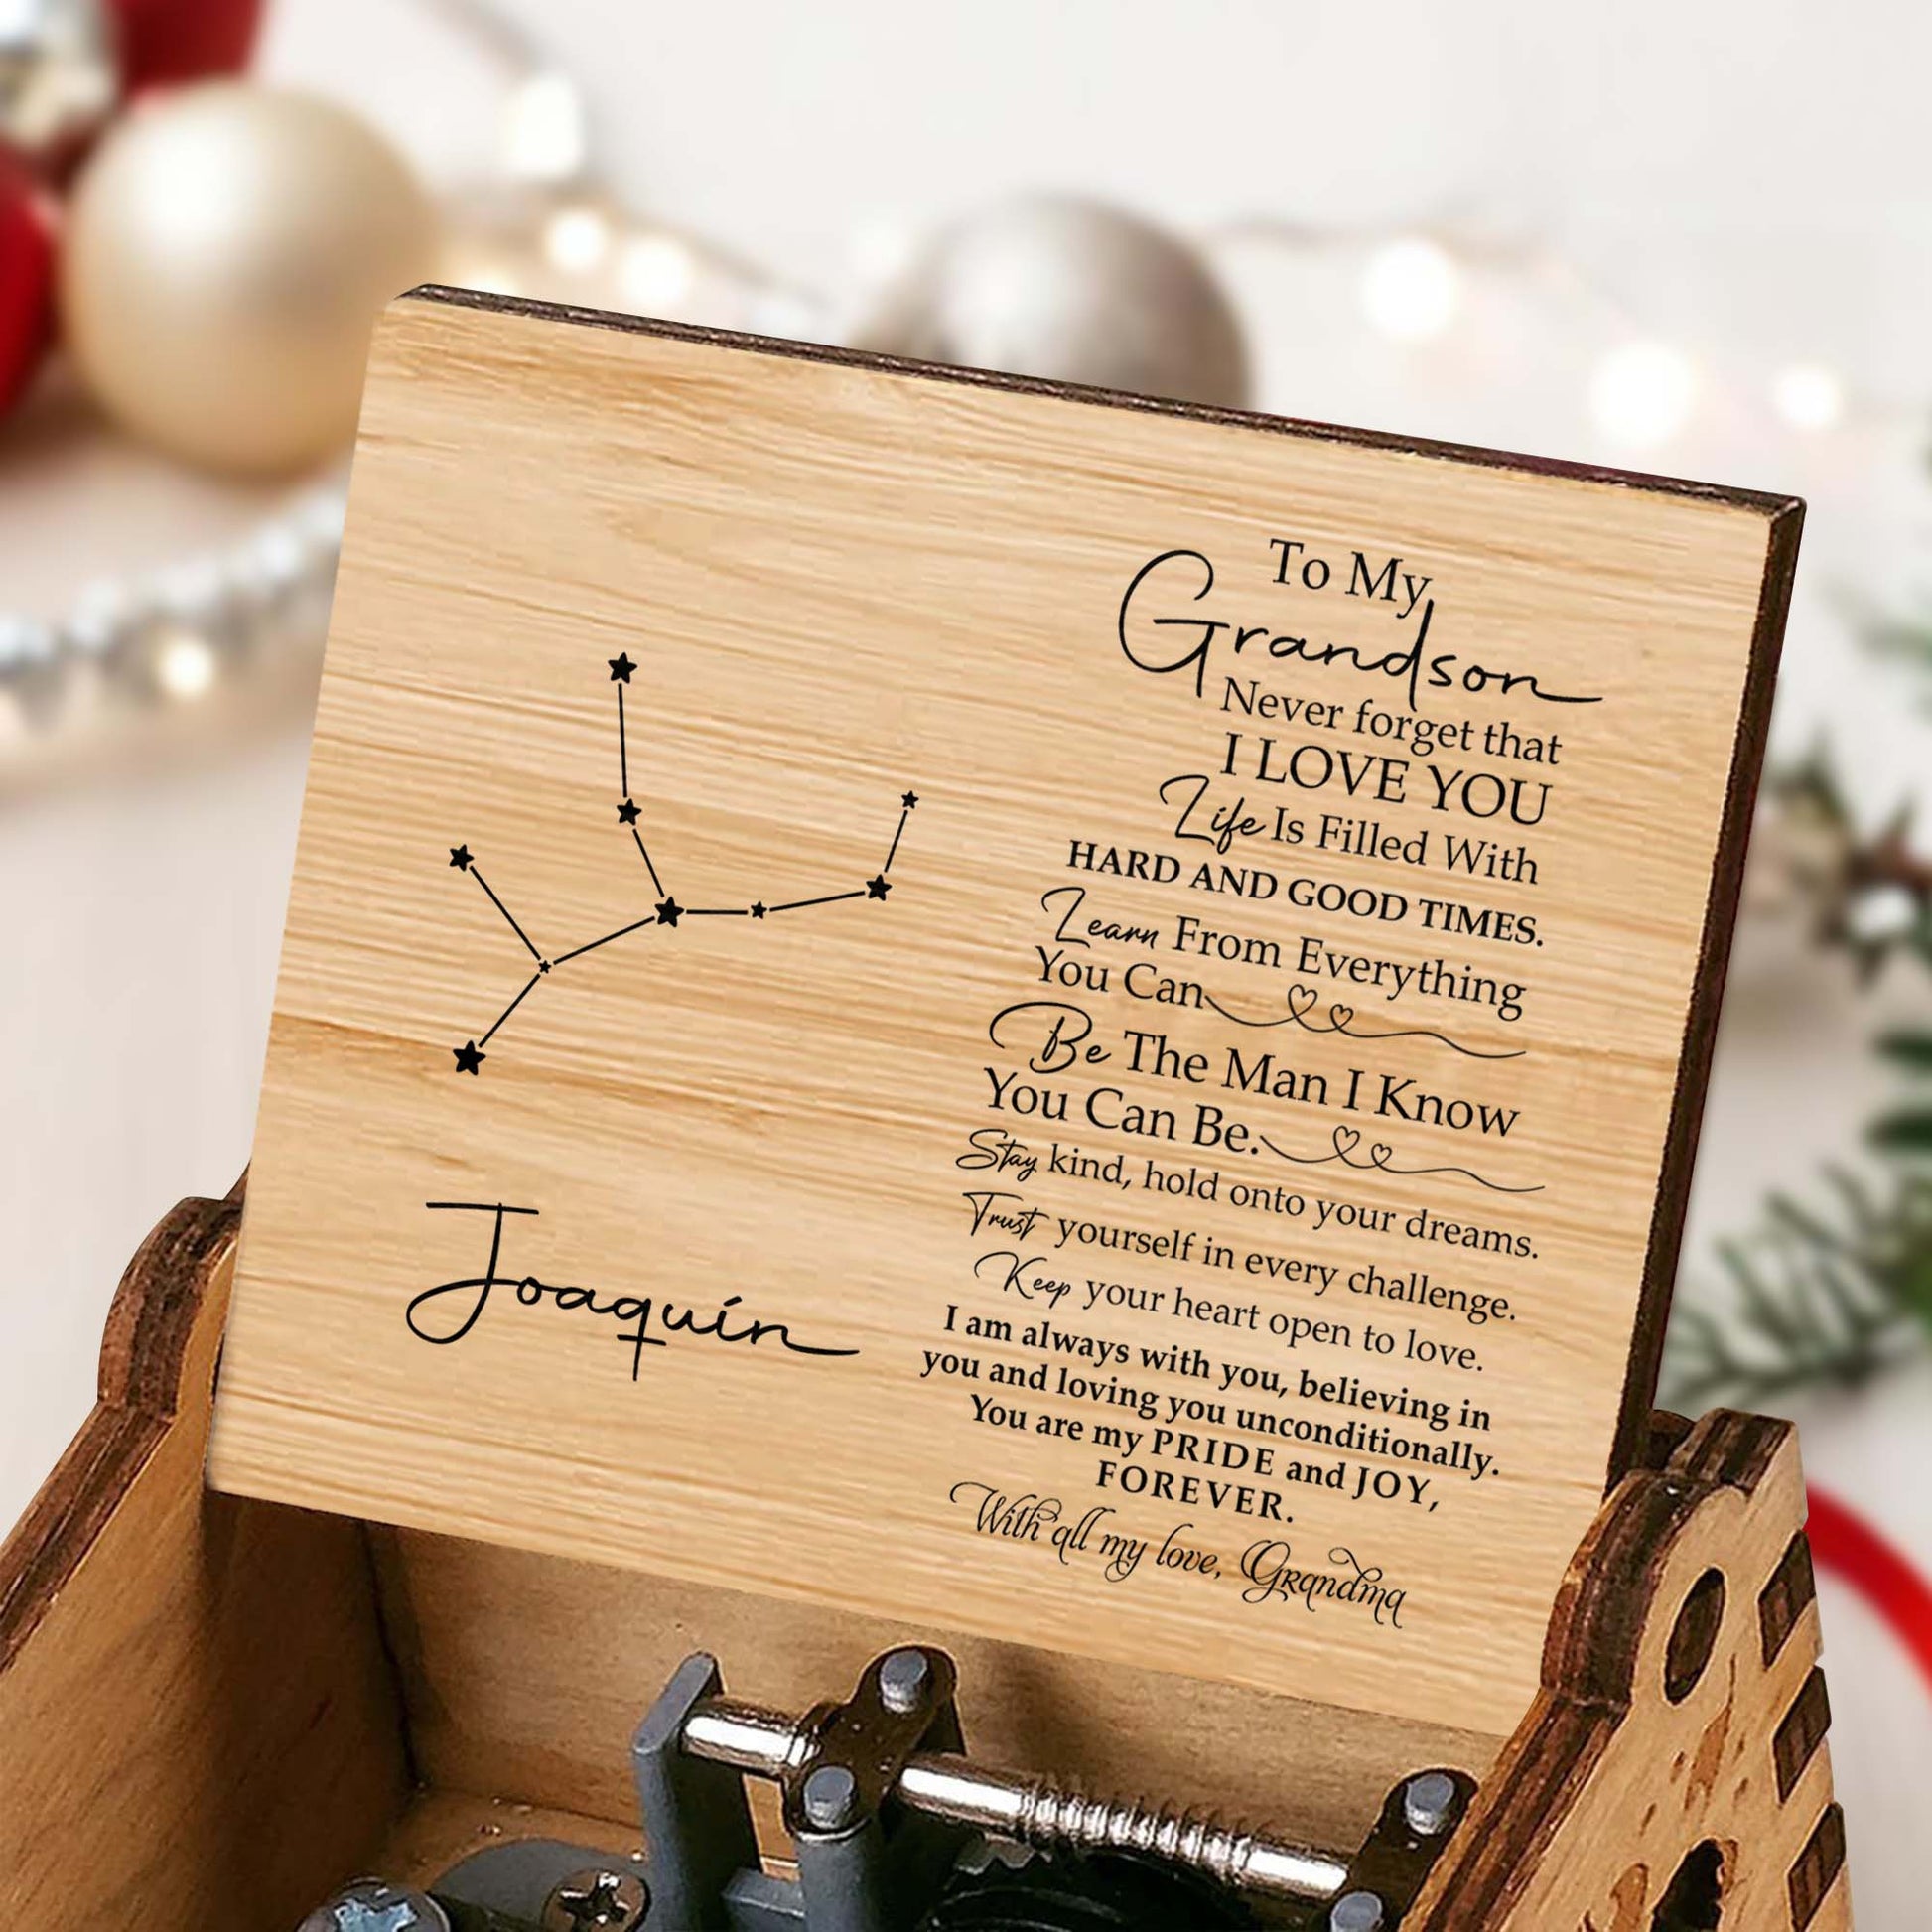 To My
Grandson
Never forget that
I LOVE YOU
Life Is Filled With
HARD AND GOOD TIMES.
Learn From Everything
You Can
Be The Man I Know
You Can Be.
Stay kind, hold onto your dreams.
Trust yourself in every challenge.
Keep your heart open to love.
I am always with you, believing in
you and loving you unconditionally.
You are my PRIDE and JOY,
FOREVER.
With all my love, Grandma
Joaquín